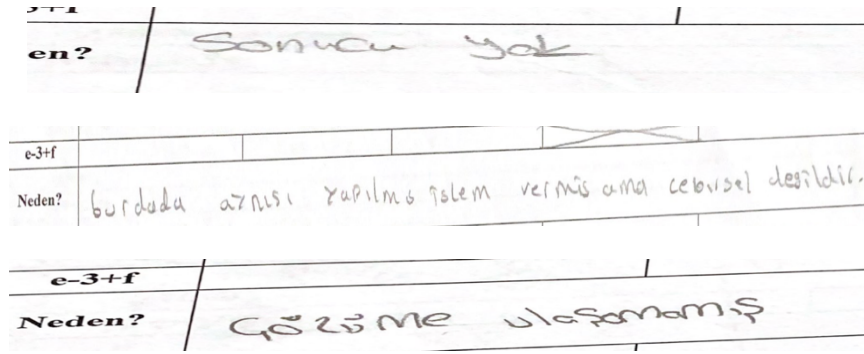 en? Sonucu yok
e-3+f
Neden? burdada aynısı yapılmış işlem vermiş ama cebirsel değildir.
e–3+f
Neden? Çözüme ulaşamamış